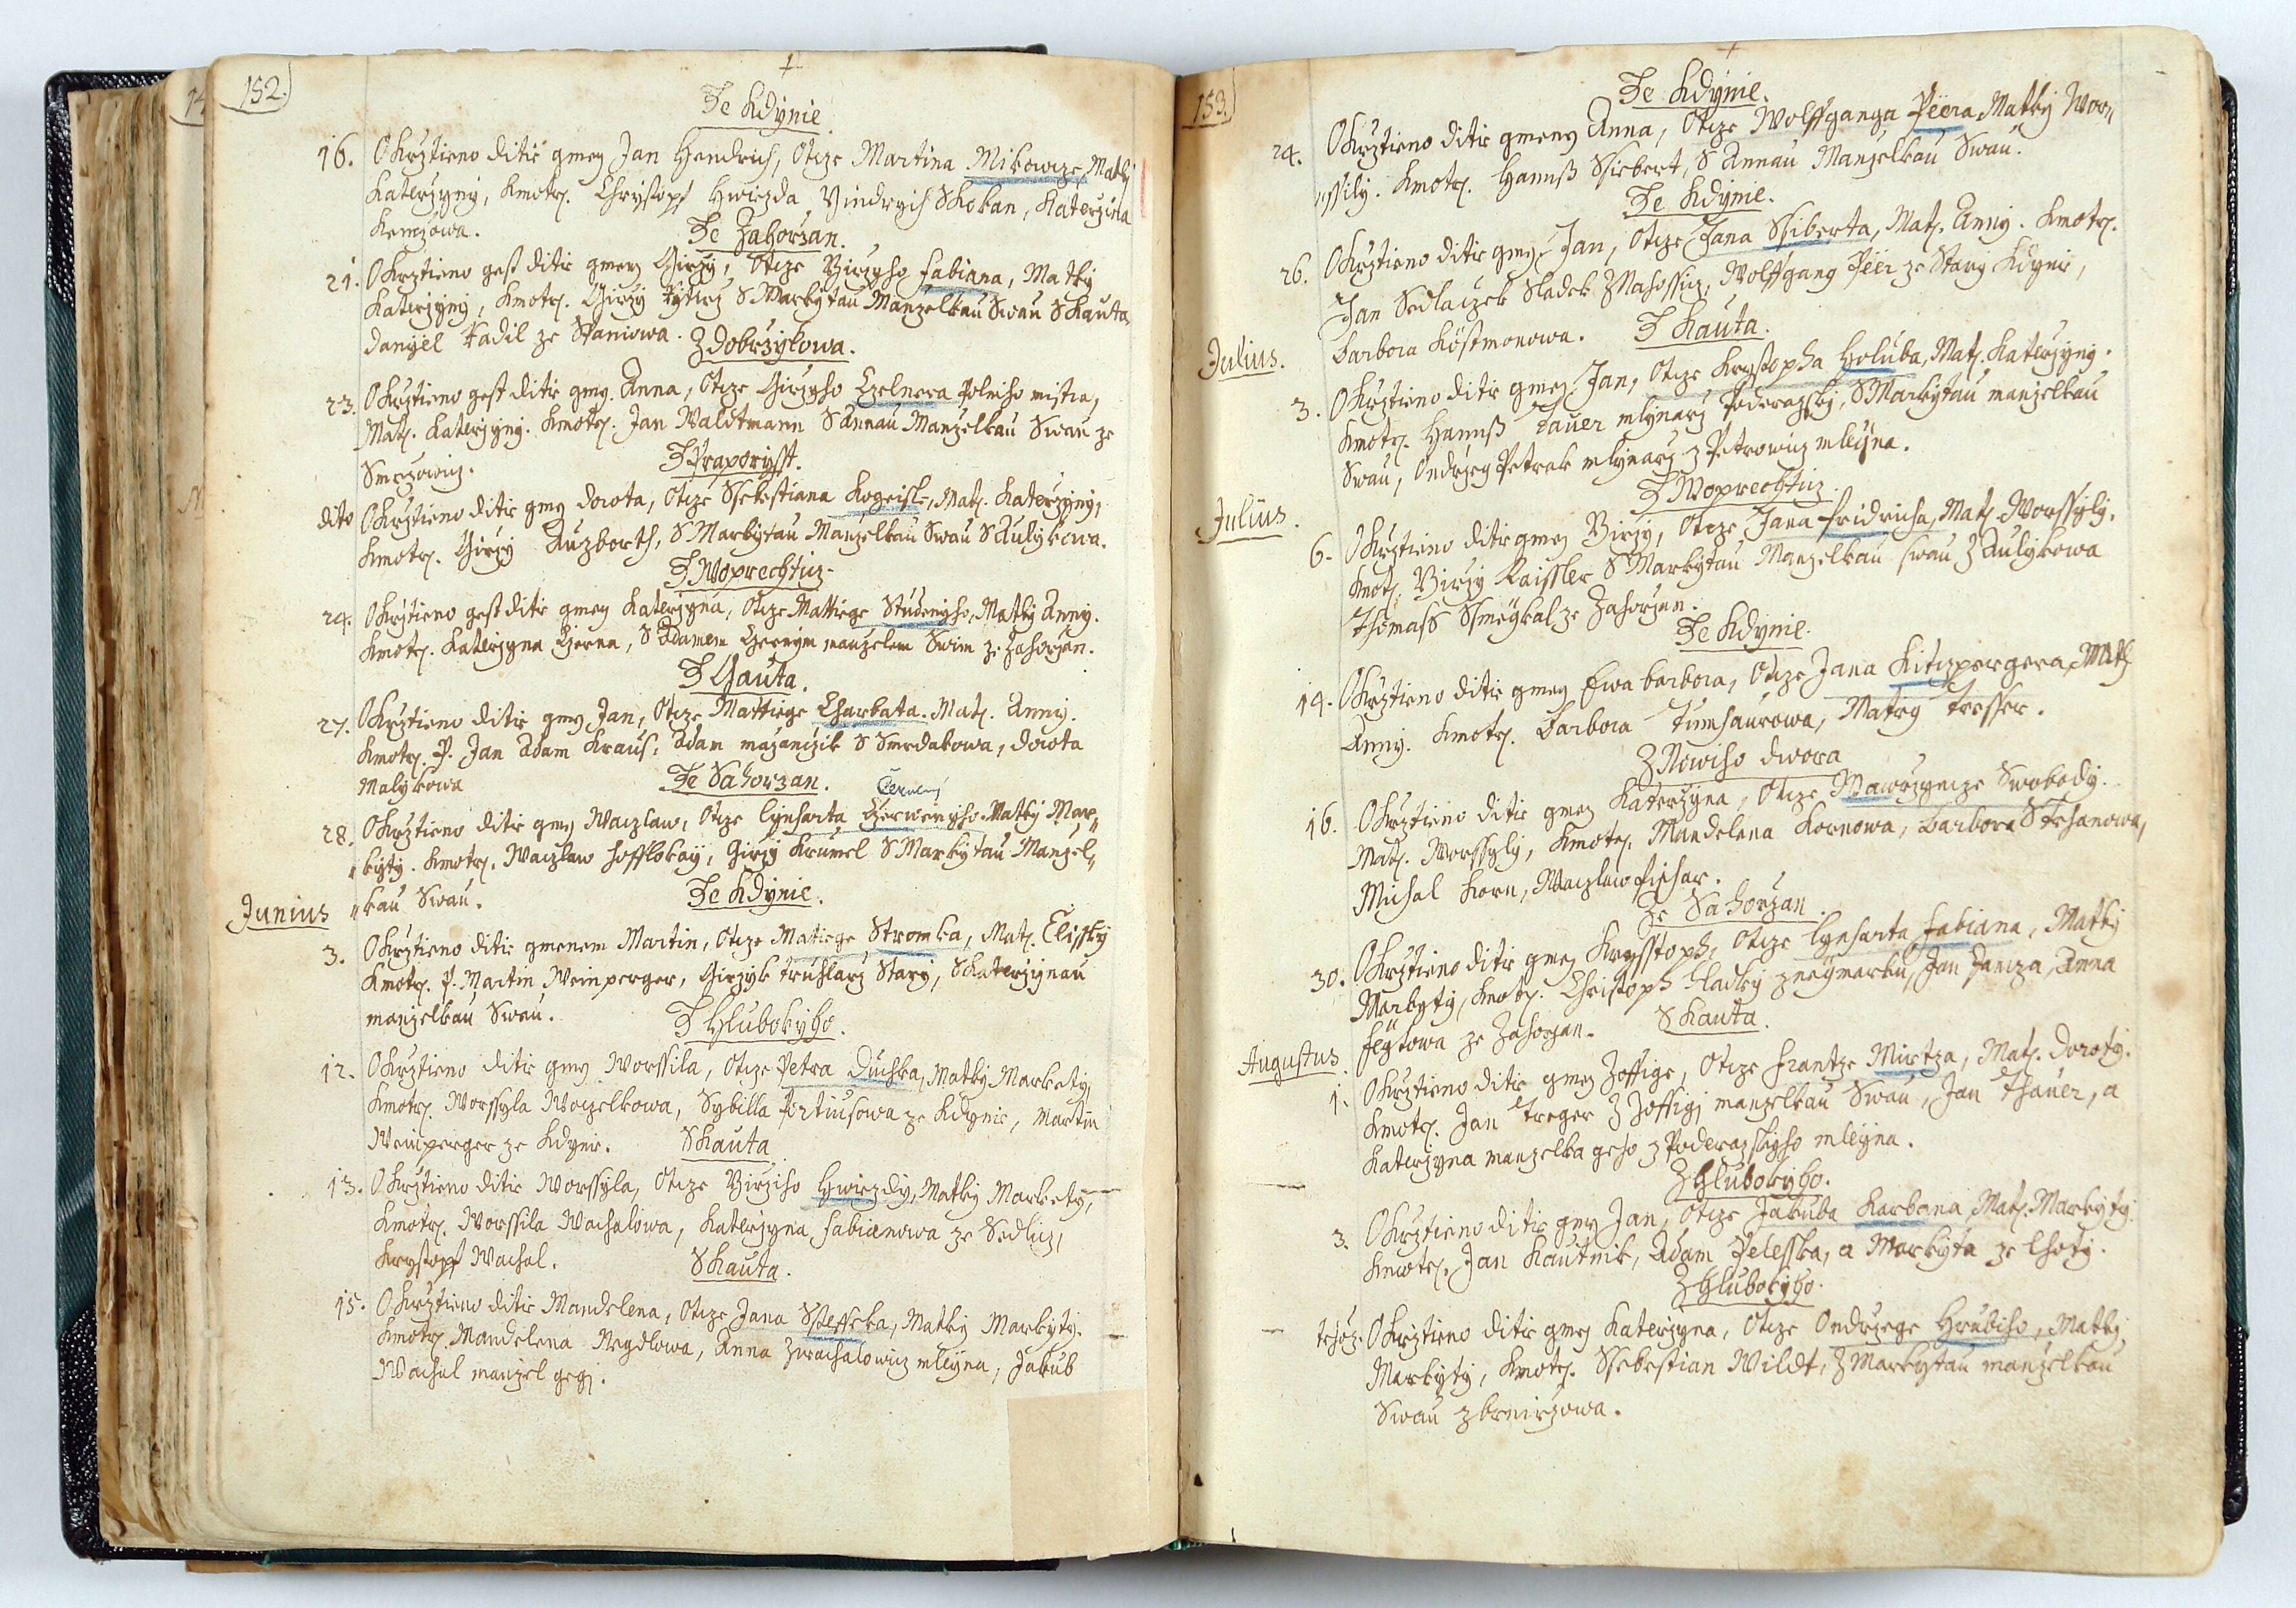 152.
Ze Kdynie
16. Okrztieno ditie gmeg Jan Hendrich, Otcze Martina Mikowcze, Matky
Katerzyny, Kmotrz. Chrystoph Hwiezda Kateržina
Ze Zahorzan.
21. Okrztieno gest ditie gmeg Girzy, Otcze Girzyho Fabiana, Matky
Katerzyny, Kmotrz. Girzy S Markytau Manzelkau Swau S Kauta,
Danyel Kadil ze Staniowa.
Z Dobrzykowa.
23. Okrztieno gest ditie gmeg. Anna, Otcze Girzyho Czelnera Polniho mistra,
Matz. Katerzyny. Kmotrz. Jan Waldtmann S Annau Manzelkau Swau ze
Smrzowicz.
Z Praporysst.
dito Okrztieno ditie gmeg Dorota, Otcze Ssebestiana Kogeisk, Matz. Katerzyny,
Kmotrz. Girzy Auzborth, S Markytau Manzelkau Swau S Aulykowa.
Z Woprechticz.
24. Okrztieno gest ditie gmeg Katerzyna, Otcze Mattiege Studenyho, Matky Anny.
Kmotrz. Katerzyna Czerna, S Adamem Czernym manzelem Swim ze Zahorzan.
Z Gauta.
27. Okrztieno ditie gmeg Jan, Otcze Mattiege Charbata. Matz. Anny.
Kmotrz. P. Jan Adam Kraus, Adam mazanczik S Smrdakowa, Dorota
Malykowa
Ze Sahorzan.
Červený
28. Okrztieno ditie gmeg Waczlaw, Otcze Lynharta Czerwenyho. Matky Mar„
„kyty. Kmotrz. Waczlaw Hofflokay, Girzy Krumel S Markytau Manzel„
„kau Swau.
Ze Kdynie.
Junius
3. Okrztieno ditie gmenem Martin, Otcze Matiege Stromka, Matz. Elissky
Kmotrz. P. Martin Weinperger, Girzyk Truhlarz Stary, S Katerzynau
manzelkau Swau.
Z Hlubokyho.
12. Okrztieno ditie gmeg Worssila, Otcze Petra Duchka, Matky Markety,
Kmotrz. Worssyla Woczelkowa, Sybilla Portiusowa ze Kdynie, Martin
Weinperger ze Kdynie.
S Kauta
13. Okrztieno ditie Worssyla, Otcze Girziho Hwiezdy, Matky Markety,
Kmotrz. Worssila Wachalowa, Katerzyna Fabianowa ze Sedlicz,
Krystoph Wachal.
S Kauta.
15. Okrztieno ditie Mandelena, Otcze Jana Ssteffeka, Matky Markyty.
Kmotrz. Mandelena Negdlowa, Anna Zwachalowicz mleyna, Jakub
Wachal manzel gegj.
153.
Ze Kdynie.
24. Okrztieno ditie gmeny Anna, Otcze Wolffganga Peera, Matky Wor„
„ssily. Kmotrz. Hannß Ssiebert, S Annau Manzelkau Swau.
Ze Kdynie.
26. Okrztieno ditie gmeg. Jan, Otcze Jana Ssiberta, Matz. Anny. Kmotrz.
Jan Sedlaczek Sladek Wolffgang Peer ze Stary Kdynie,
Barbora Köstmonowa.
Z Kauta.
Julius.
3. Okrztieno ditie gmeg Jan, Otcze Krystopha Holuba, Matz. Katerzyny.
Kmotrz. Hannß Tauer mlynarz Poderazsky, S Markytau manzelkau
Swau, Ondrzeg Petrak mlynarz z Petrowicz mleyna.
Z Woprechticz.
Julius.
6. Okrztieno ditie gmeg Girzy, Otcze Jana Fridricha, Matz. Worssyly.
Kmotrz. Girzy Kaissler S Markytau Manzelkau swau Z Aulykowa
Thomass Ssmeykal ze Zahorzan.
Ze Kdynie.
14. Okrztieno ditie gmeg Ewa barbora, Otcze Jana Kitzpergera, Matz.
Anny. Kmotrz. Barbora Tumhaurowa, Matieg Tresser.
Z Nowiho dwora
16. Okrztieno ditie gmeg Katerzyna, Otcze Wawrzyncze Swobody.
Matz. Worssyly, Kmotrz. Mandelena Kornowa, Barbora
Michal Korn, Waczlaw Fischar.
Ze Sahorzan.
30. Okrztieno ditie gmeg Krysstoph, Otcze Lynharta Fabiana, Matky
Markyty, Kmotrz. Christoph Hladky z neymarku, Jan Jancza, Anna
Feytowa ze Zahorzan.
S Kauta.
Augustus.
1. Okrztieno ditie gmeg Zoffige, Otcze Frantze Mirtza, Matz. Doroty.
Kmotrz. Jan Treger Z Zoffigj manzelkau Swau, Jan Thauer, a
Katerzyna manzelka geho z Poderazskyho mleyna.
Z Hlubokyho.
3. Okrztieno ditie gmeg Jan, Otcze Jakuba Karbana, Matz. Markyty.
Kmotrz. Jan Kautnik, Adam Pelesska, a Markyta ze Lhoty.
Z Hlubokyho.
tehoz. Okrztieno ditie gmeg Katerzyna, Otcze Ondrzege Hrubiho, Matky
Markyty, Kmotrz. Ssebestian Wildt, Z Markytau manzelkau
Swau z brnirzowa.